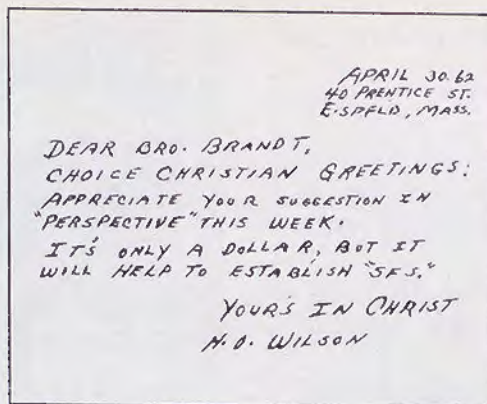 APRIL 30.62
40 PRENTICE ST.
E. SPFLD, MASS.
DEAR BRO. BRANDT,
CHOICE CHRISTIAN GREETINGS:
APPRECIATE YOUR SUGGESTION IN
"PERSPECTIVE" THIS WEEK.
IT'S ONLY A DOLLAR, BUT IT
WILL HELP TO ESTABLISH "SFS."
YOUR'S IN CHRIST
H. O. WILSON